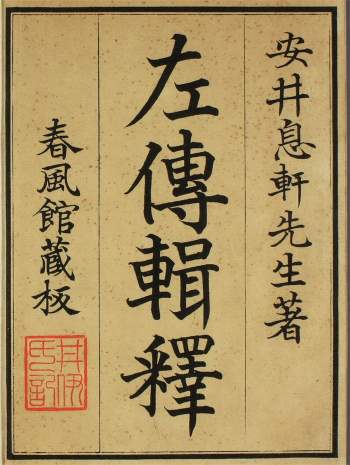 安井息軒先生著
左傳輯釋
春風館藏板
井伊氏記